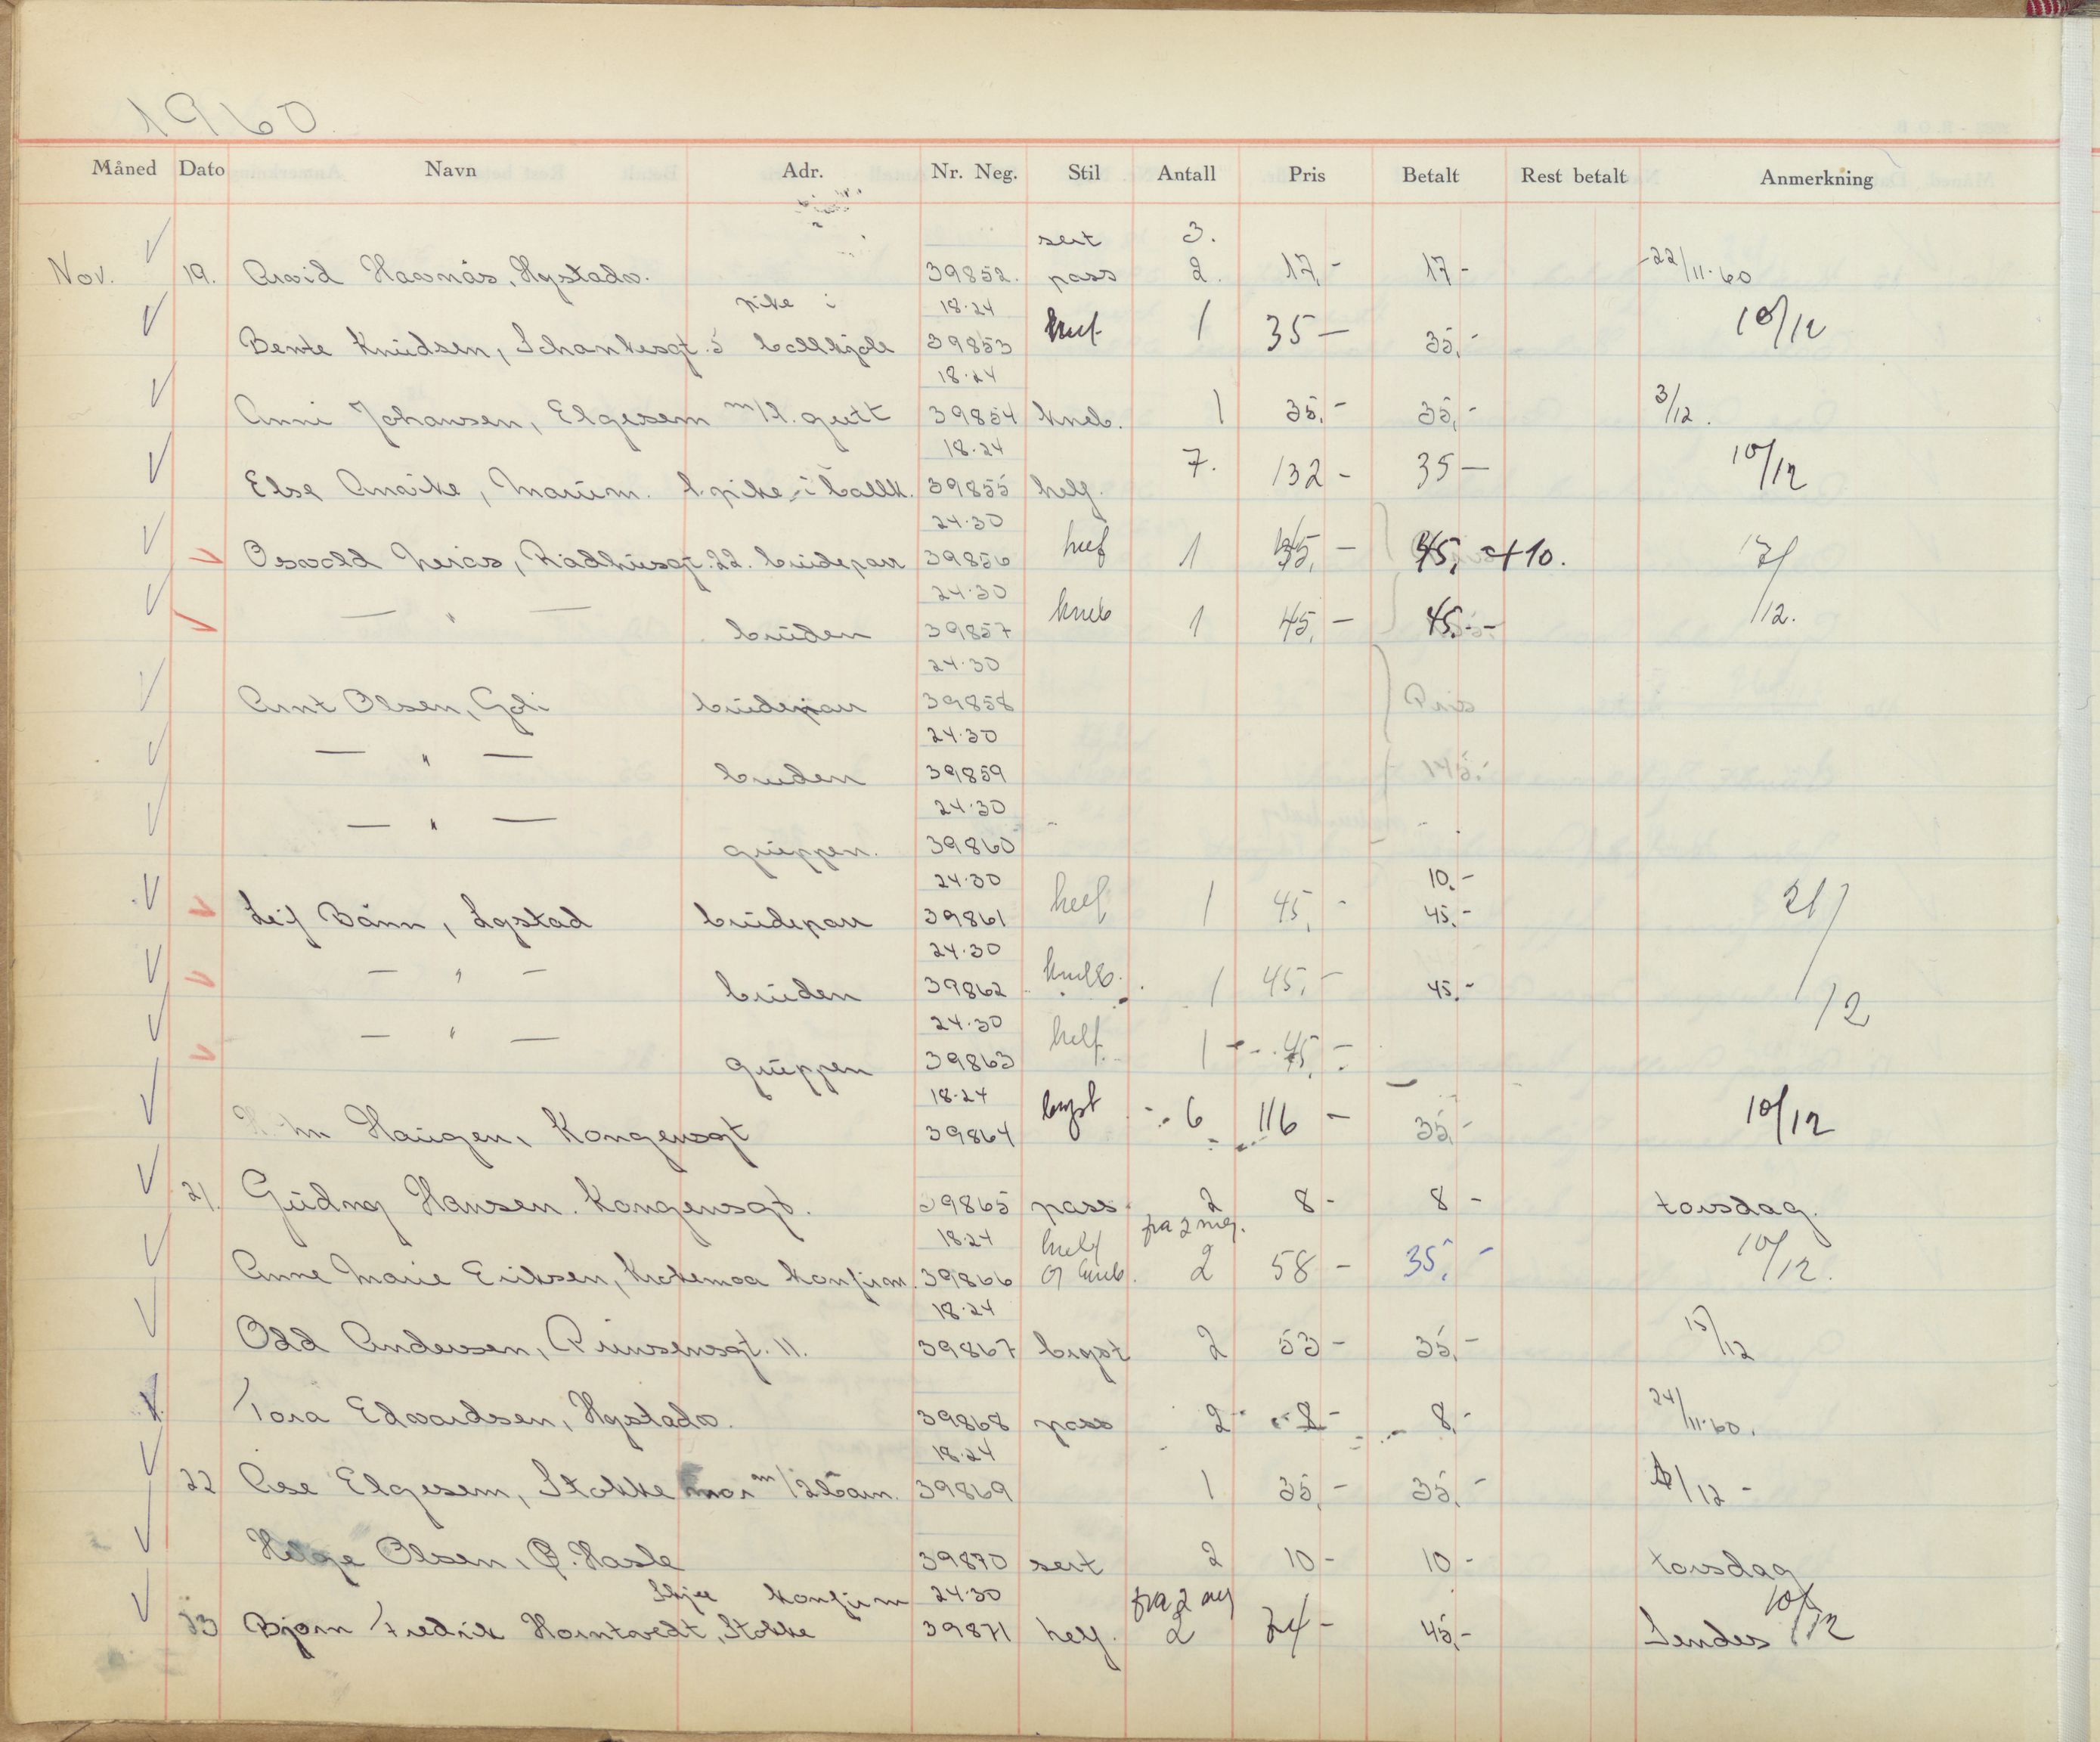 1960
Måned Dato Navn Adr. Nr. Neg. Stil Antall Pris Betalt Rest betalt Anmerkning
sert 3.
Nov. 19. Arvid Havnås, Nystadv. 39852. pass 2. 17,- 17- 22/11-60
pike i 18-24
Bente Knudsen, Schankesgt. 5 ballkjole 39853 knef 1 35- 35,- 10/12
18-24
Anni Johansen, Elgesem m/l. gutt 39854 kneb. 1 35,- 35,- 3/12.
18-24
Else Marum. l. pike i ballk. 39855 helf. 7. 132- 35- 10/12
24-30
Osvald Rådhusgt. 22. brudepar 39856 helf 1 45,- 45, +10.
24-30
— " — bruden 39857 kneb 1 45,- 45,- /12.
24-30
Arnt Olsen, Goli brudepar 39858 Pris
24-30
— " — bruden 39859 145,-
24-30
— " — gruppen. 39860
24-30 10,-
Leif Bånn, brudepar 39861 helf 1 45,- 45,- 21/12
24-30
— " — bruden 39862 1 45,- 45,-
24-30
— " — gruppen 39863 helf. 1 45,-
18-24
Haugen, Kongensgt 39864 bryst 6 116- 35,- 10/12
21. Gudny Hansen. Kongensgt. 39865 pass 2 8- 8- torsdag.
18-24 helf fra 2 neg.
Anne Marie Eriksen, Krokemoa konfirm. 39866 og kneb. 2 58- 35,- 10/12.
18-24
Odd Andersen, Prinsensgt. 11. 39867 bryst 2 53- 35,- 15/12
Tora Edvardsen, Nystadv. 39868 pass 2 8- 8,- 24/11-60.
18-24
22 Åse Elgesem, Stokke mor m/2 barn. 39869 1 35,- 35,- /12-
Helge Olsen, Ø. Hasle 39870 sert 2 10- 10- torsdag
Skjee konfirm 24-30 fra 2 neg
23 Bjørn Fredrik Horntvedt, Stokke 39871 helf. 2 74- 45,- Sendes 10/12